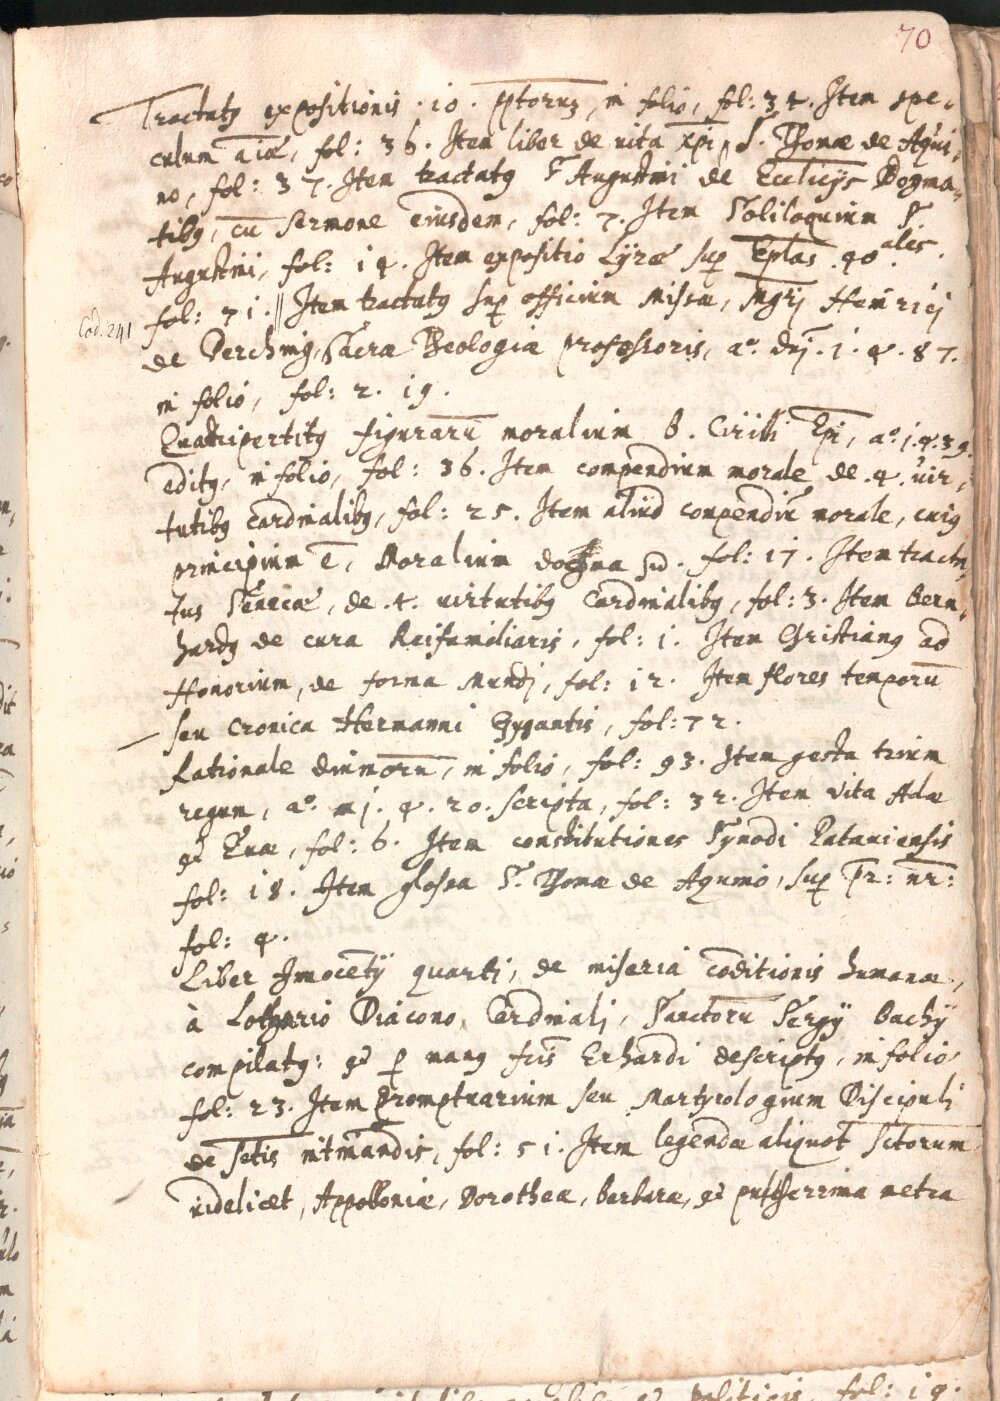 70
Tractatꝰ expositionis .10. p̄ptoruꝫ, in folio, fol: 34. Item spe-
culum aiæ, fol: 36. Item liber de uita xp̄i, S. Thomæ de Aqui-
no, fol: 37. Item tractatꝰ S Augustini de Eccl̄icijs Dogma-
tibꝰ, cū sermone eiusdem, fol: 7. Item Soliloquium S
Augustini, fol: 14. Item expositio Lÿræ sup̄ Ep̄las 40ales.
fol: 71. || Item tractatꝰ sup̄ officium Missæ, Mgrj Henricj
Cod. 241
de Perching, Sacræ Theologiæ professoris, aº. dnj̄. 1.4.87.
in folio, fol: 2.19.
Quadripertitꝰ figurarū moralium B. Cirilli Ep̄i, aº. j.4.39.
editꝰ, in folio, fol: 36. Item compendium morale de .4. uir-
tutibꝰ cardinalibꝰ, fol: 25. Item aliud compendiū morale, cuiꝰ
principium ē, Moralium docma sid. fol: 17. Item tracta-
tus Senecæ, de .4. uirtutibꝰ Cardinalibꝰ, fol: 3. Item Bern-
hardꝰ de cura Reifamiliaris, fol: 1. Item Christianꝰ ad
Honorium, de forma Mundj, fol: 12. Item flores temporū
seu Cronica Hermanni Gygantis, fol: 72.
Rationale diuinorū, in folio, fol: 93. Item gesta trium
regum, aº. j.4.20. scripta, fol: 32. Item vita Adæ
et Euæ, fol: 6. Item constitutiones Synodi Patauiensis
fol: 18. Item glossa S. Thomæ de Aquino, sup̄ Pr̄: nr̄:
fol: 4.
Liber Innocētij quarti, de miseria cōditionis humanæ,
à Lothario Diacono, Cardinalj, Sanctorū Sergÿ Bachÿ
compilatꝰ: et p̄ manꝰ frīs Erhardi descriptꝰ, in folio
fol: 23. Item Promptuarium seu Martyrologium Discipuli
de Sc̄tis intimandis, fol: 51. Item legendæ aliquot Sc̄torum
uidelicet, Appolloniæ, Dorotheæ, barbaræ, et pulcherrima metra
fol: 19.